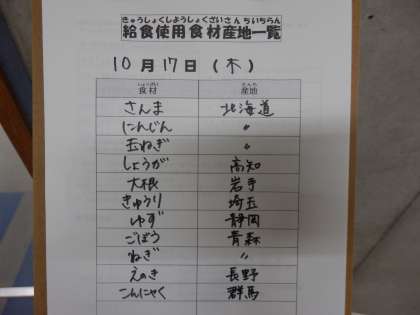 きゅうしょくしようしょくざいさんちいちらん
給食使用食材産地一覧
10月17日(木)
しょくざい さんち
食材 産地
さんま 北海道
にんじん 〃
玉ねぎ 〃
しょうが 高知
大根 岩手
きゅうり 埼玉
ゆず 静岡
ごぼう 青森
ねぎ 〃
えのき 長野
こんにゃく 群馬